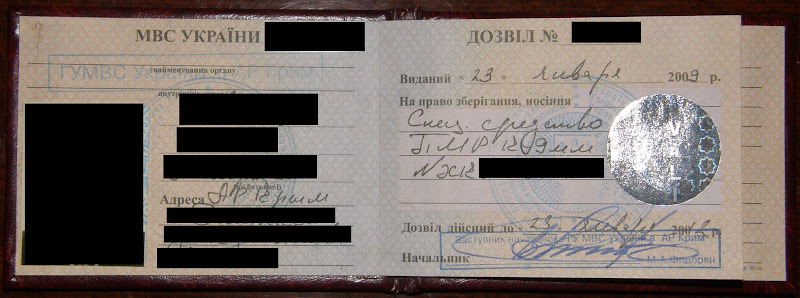 МВС УКРАЇНИ
ГУМВС України в АР Крим
(найменування органу
внутрішніх справ)
Адреса АР Крым
ДОЗВІЛ №
Виданий "23" января 2009 р.
На право зберігання, носіння
Спец. средство
ПМР к 9мм
№ЖК
Дозвіл дійсний до "23" января 2012 р.
Заступник начальника ГУ МВС України в АР Крим
Начальник
М.А.Федорян